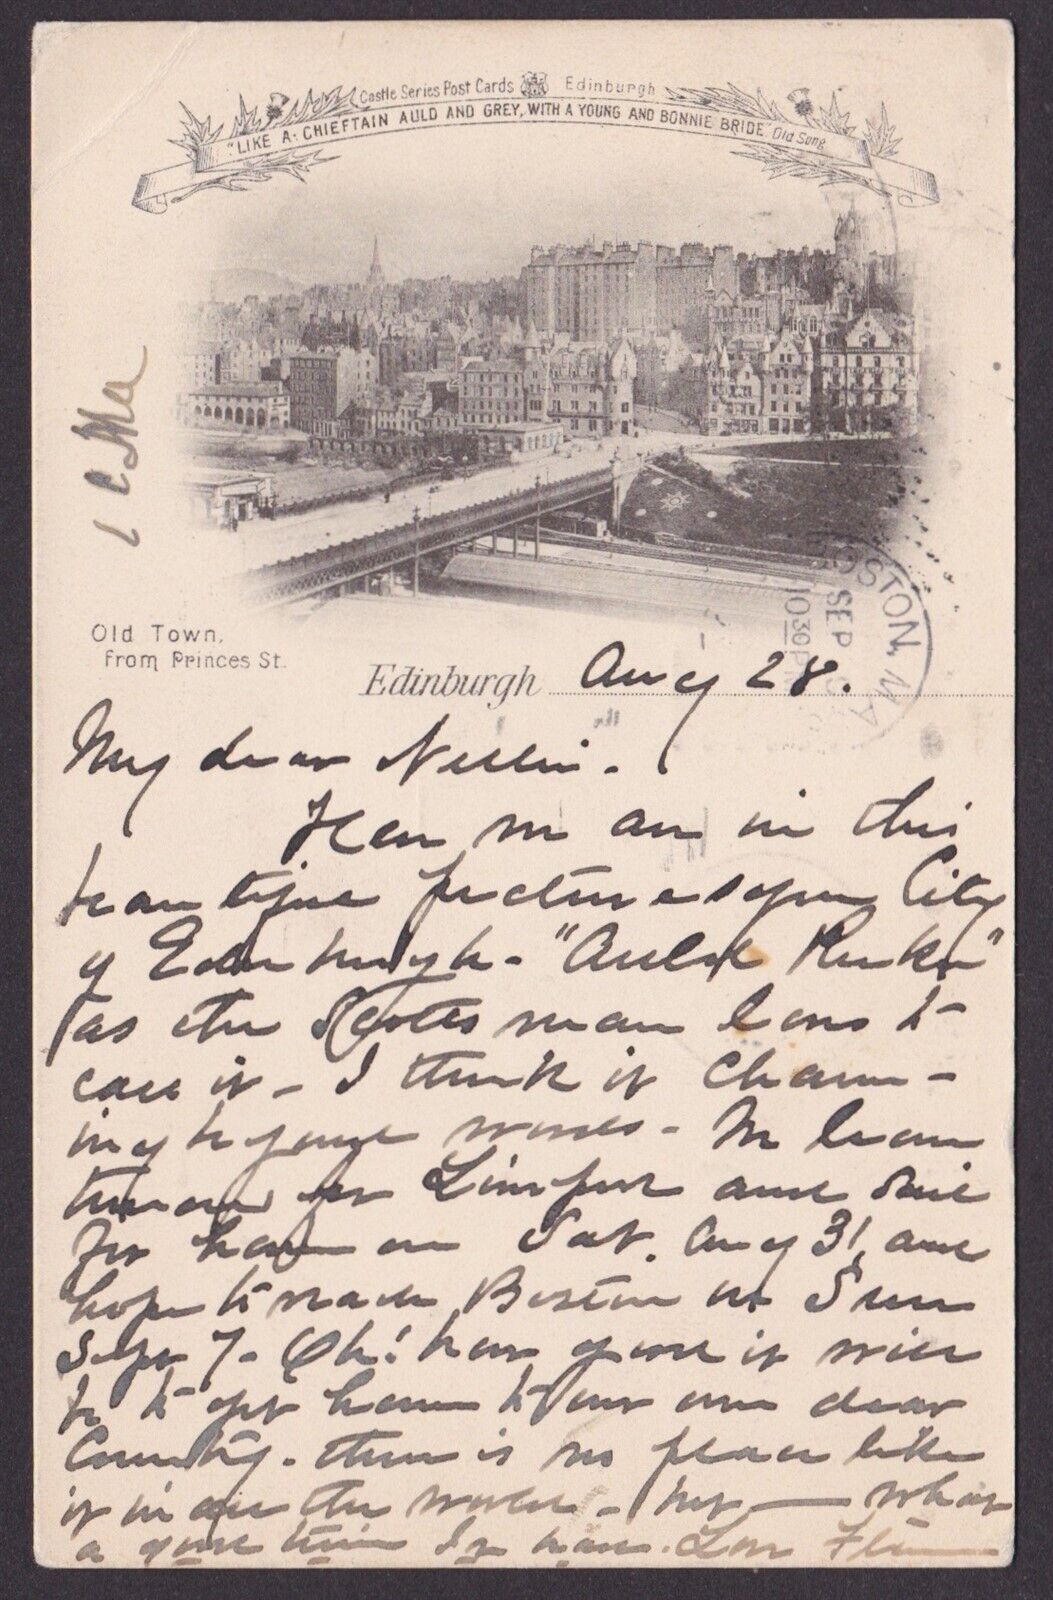 Castle Series Post Cards Edinburgh
"LIKE A CHIEFTAIN AULD AND GREY, WITH A YOUNG AND BONNIE BRIDE. Old Song
Old Town,
from Princes St.
BOSTON, MA
SEP
10 30 P
Edinburgh Aug 28.
My dear Nellie.
Here we are in this
beautiful picturesque City
of Edinburgh - "Auld Reekie"
as the Scotsman loves to
call it - I think it charm-
ing beyond words - We leave
for Liverpool and sail
for home on Sat. Aug 31, and
hope to reach Boston on
Sept 7 - Oh! how good it will
be to get home to our own dear
Country - there is no place like
it in all the world - but — what
a good time I've had. Love